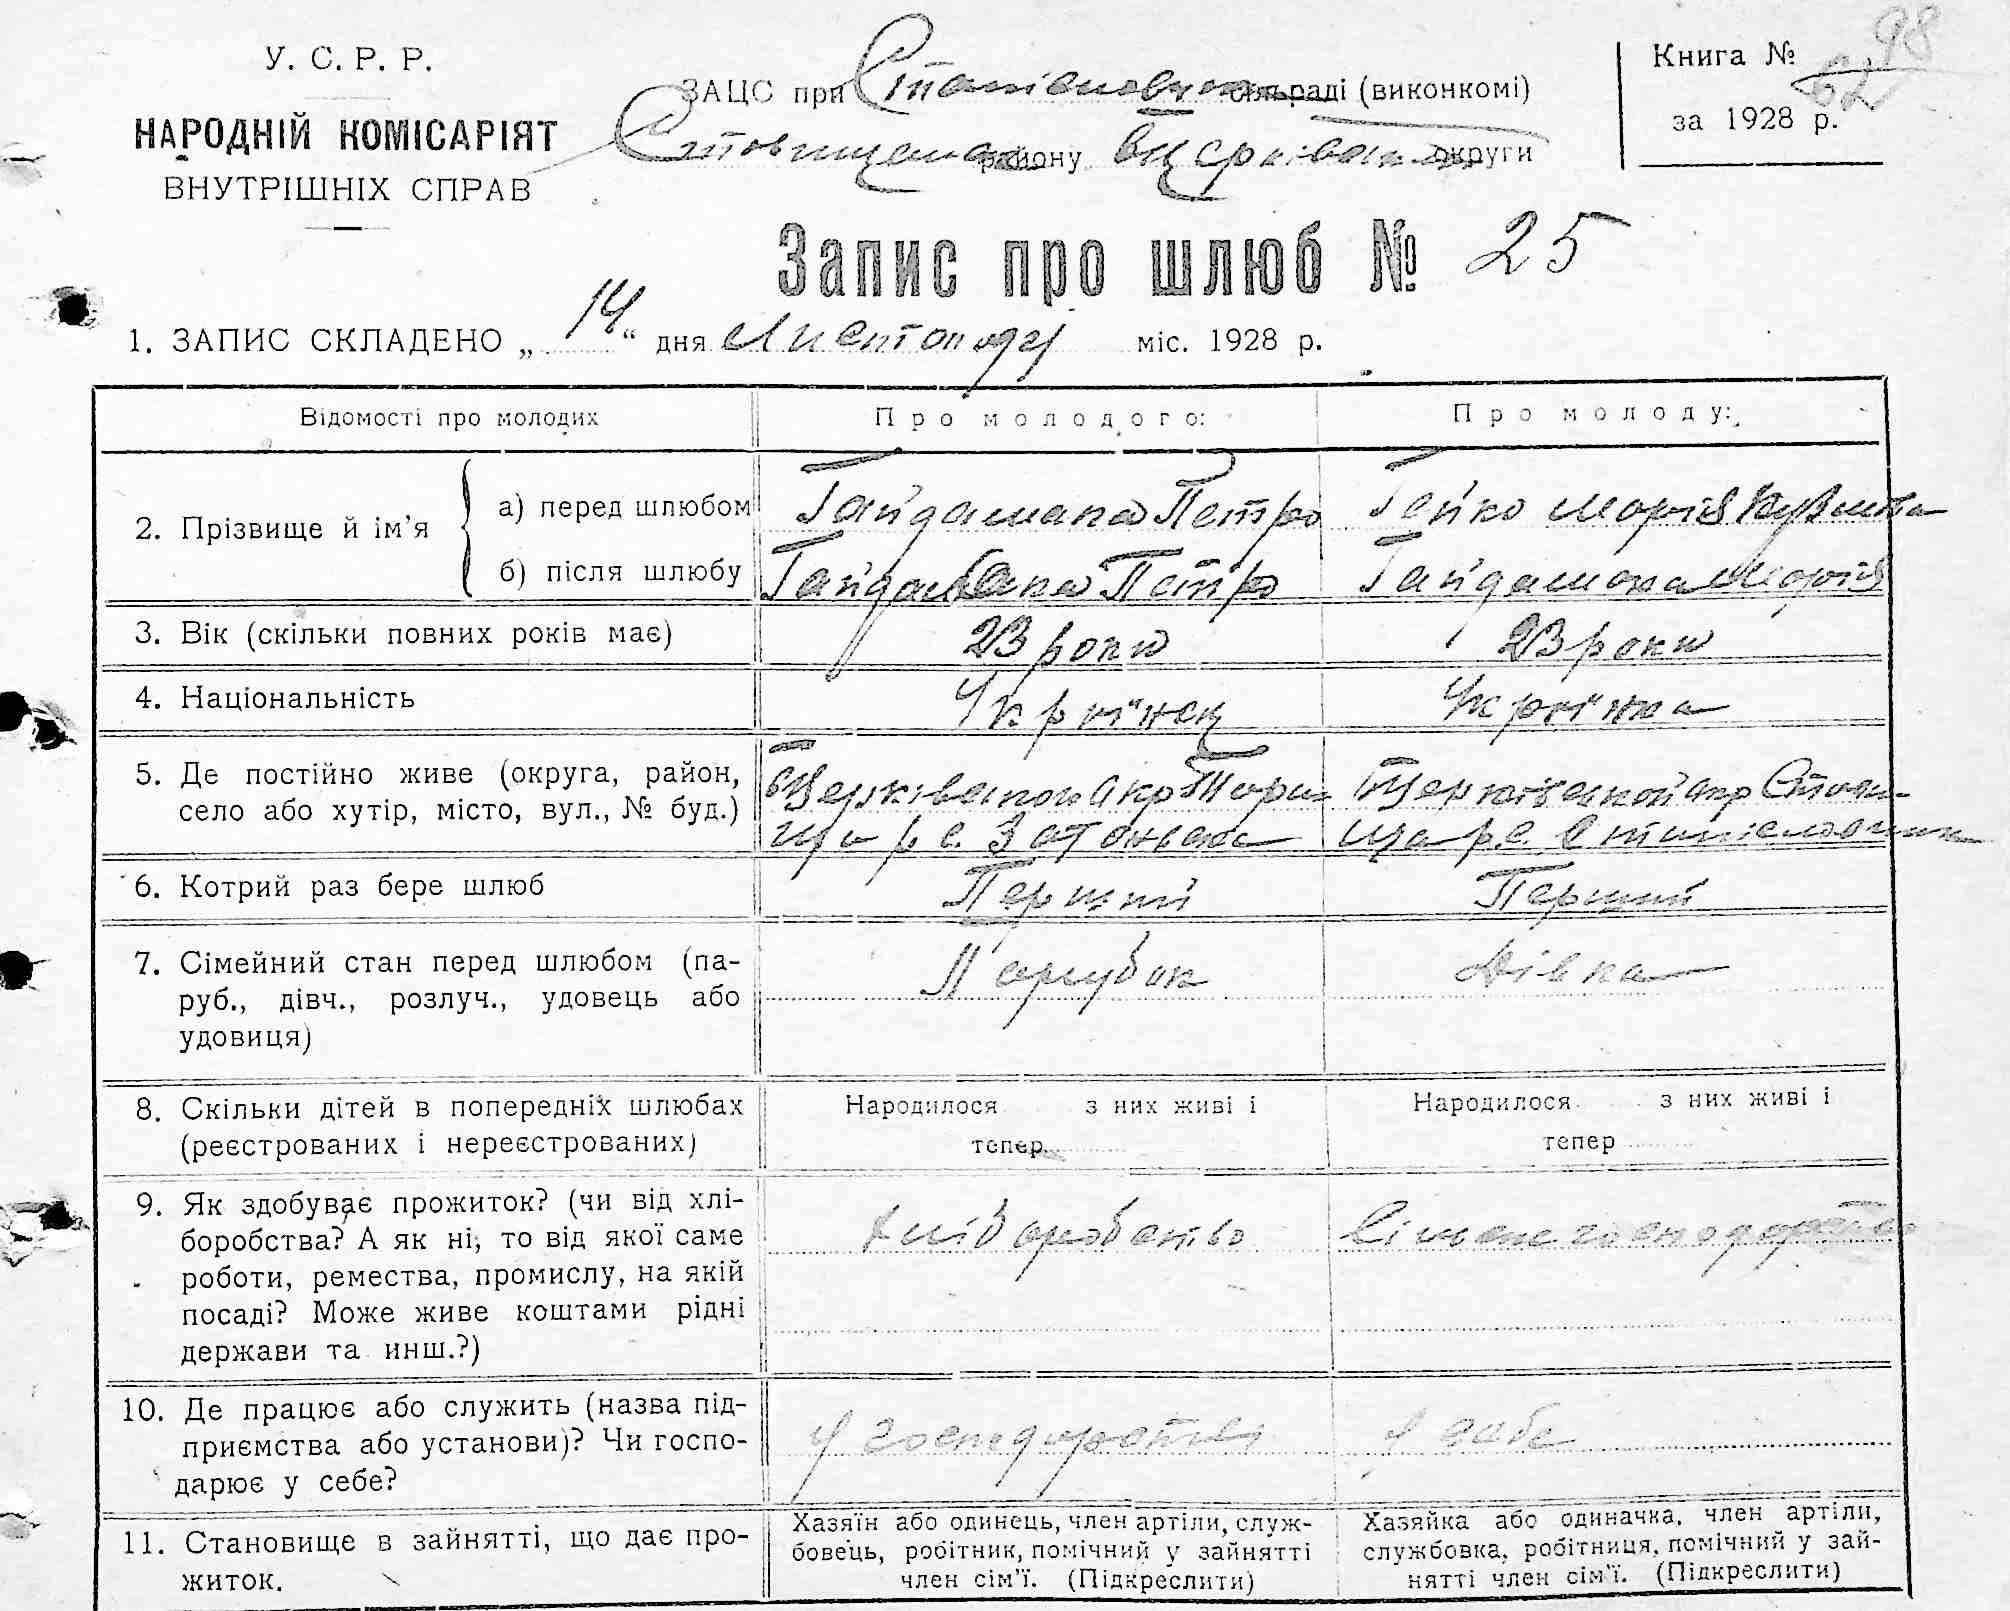 98
У. С. Р. Р.
НАРОДНІЙ КОМІСАРІЯТ
ВНУТРІШНІХ СПРАВ
ЗАЦС при сільраді (виконкомі)
району округи
Книга № 62
за 1928 р.
Запис про шлюб № 25
1. ЗАПИС СКЛАДЕНО „ 14 “ дня Листопаду міс. 1928 р.
Відомості про молодих Про молодого: Про молоду:
2. Прізвище й ім’я
а) перед шлюбом Гайдамака Петро Гейко Марія
б) після шлюбу Гайдамака Петро Гайдамака Марія
3. Вік (скільки повних років має) 23 роки 23 роки
4. Національність Українец Українка
5. Де постійно живе (округа, район, окр окр
село або хутір, місто, вул., № буд.) ща р. с. ща р. с.
6. Котрий раз бере шлюб Перший Перший
7. Сімейний стан перед шлюбом (па- Парубок Дівка
руб., дівч., розлуч., удовець або
удовиця)
8. Скільки дітей в попередніх шлюбах Народилося з них живі і Народилося з них живі і
(реєстрованих і нереєстрованих) тепер тепер
9. Як здобуває прожиток? (чи від хлі- Хліборобство
боробства? А як ні, то від якої саме
роботи, ремества, промислу, на якій
посаді? Може живе коштами рідні
держави та инш.?)
10. Де працює або служить (назва під- У господарстві У себе
приємства або установи)? Чи госпо-
дарює у себе?
11. Становище в зайнятті, що дає про- Хазяїн або одинець, член артіли, служ- Хазяйка або одиначка, член артіли,
житок. бовець, робітник, помічний у зайнятті службовка, робітниця, помічний у зай-
член сім’ї. (Підкреслити) нятті член сім’ї. (Підкреслити)